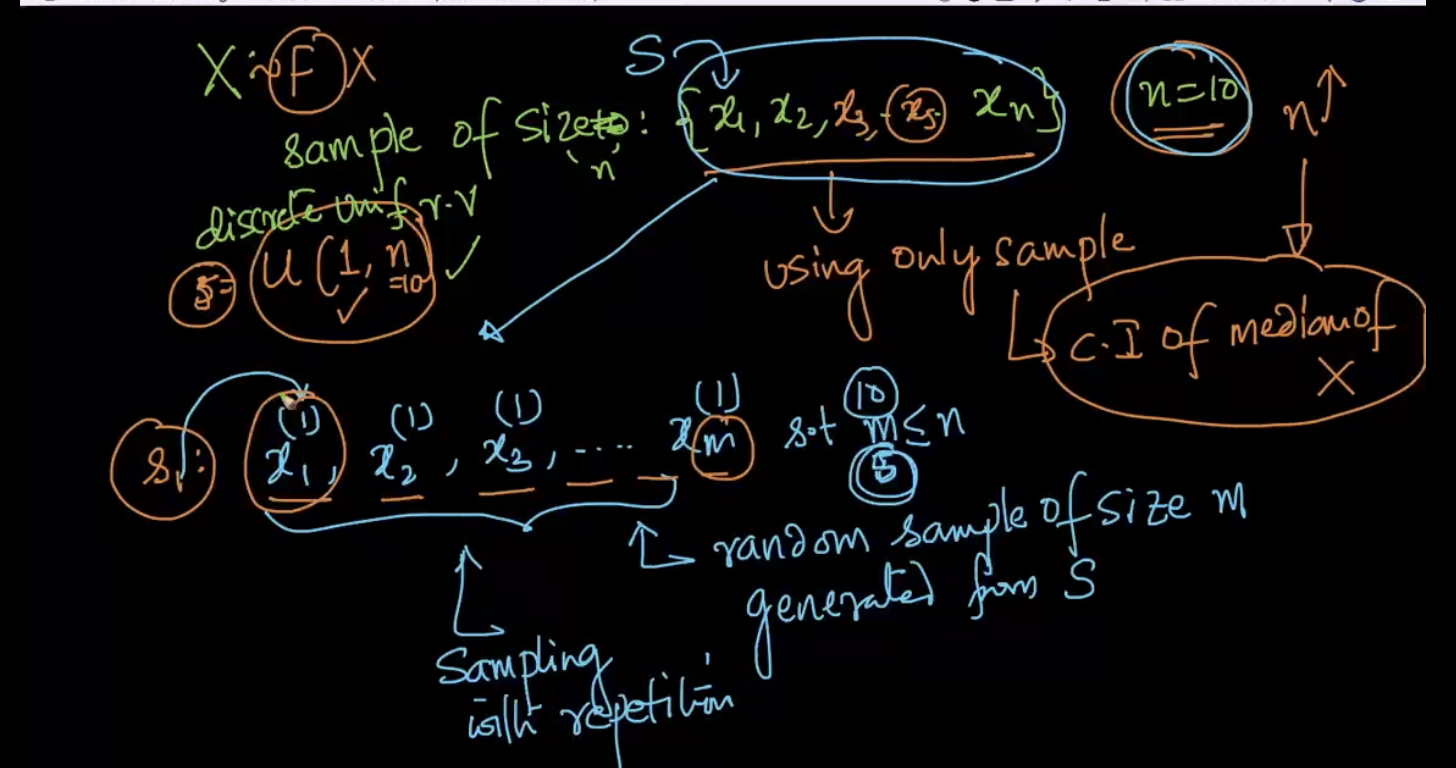 X ~ F X
S
sample of size : {x1, x2, x3, .. x5 .. xn}
'n'
n=10
n↑
discrete Unif r.v
5= U(1, n=10) ✓
using only sample
C.I of median of X
S1: x1(1), x2(1), x3(1), .... xm(1) s.t m≤n
10
5
random sample of size m
generated from S
Sampling
with repetition